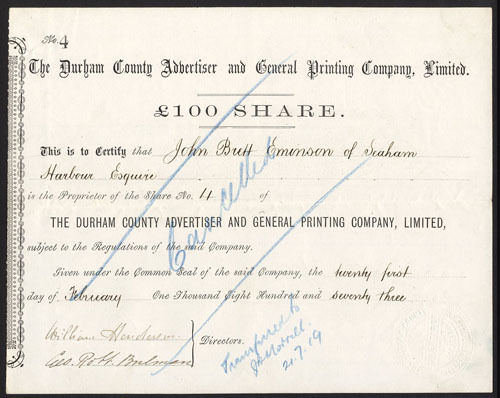 No. 4
The Durham County Advertiser and General Printing Company, Limited.
£100 SHARE.
This is to Certify that John Butt Eminson of Seaham
Harbour Esquire
is the Proprietor of the Share No. 4 of
THE DURHAM COUNTY ADVERTISER AND GENERAL PRINTING COMPANY, LIMITED,
subject to the Regulations of the said Company.
Given under the Common Seal of the said Company, the twenty first
day of February One Thousand Eight Hundred and seventy three
William Henderson
Geo. Robt.
Directors.
Cancelled
Transferred to
21.7.19